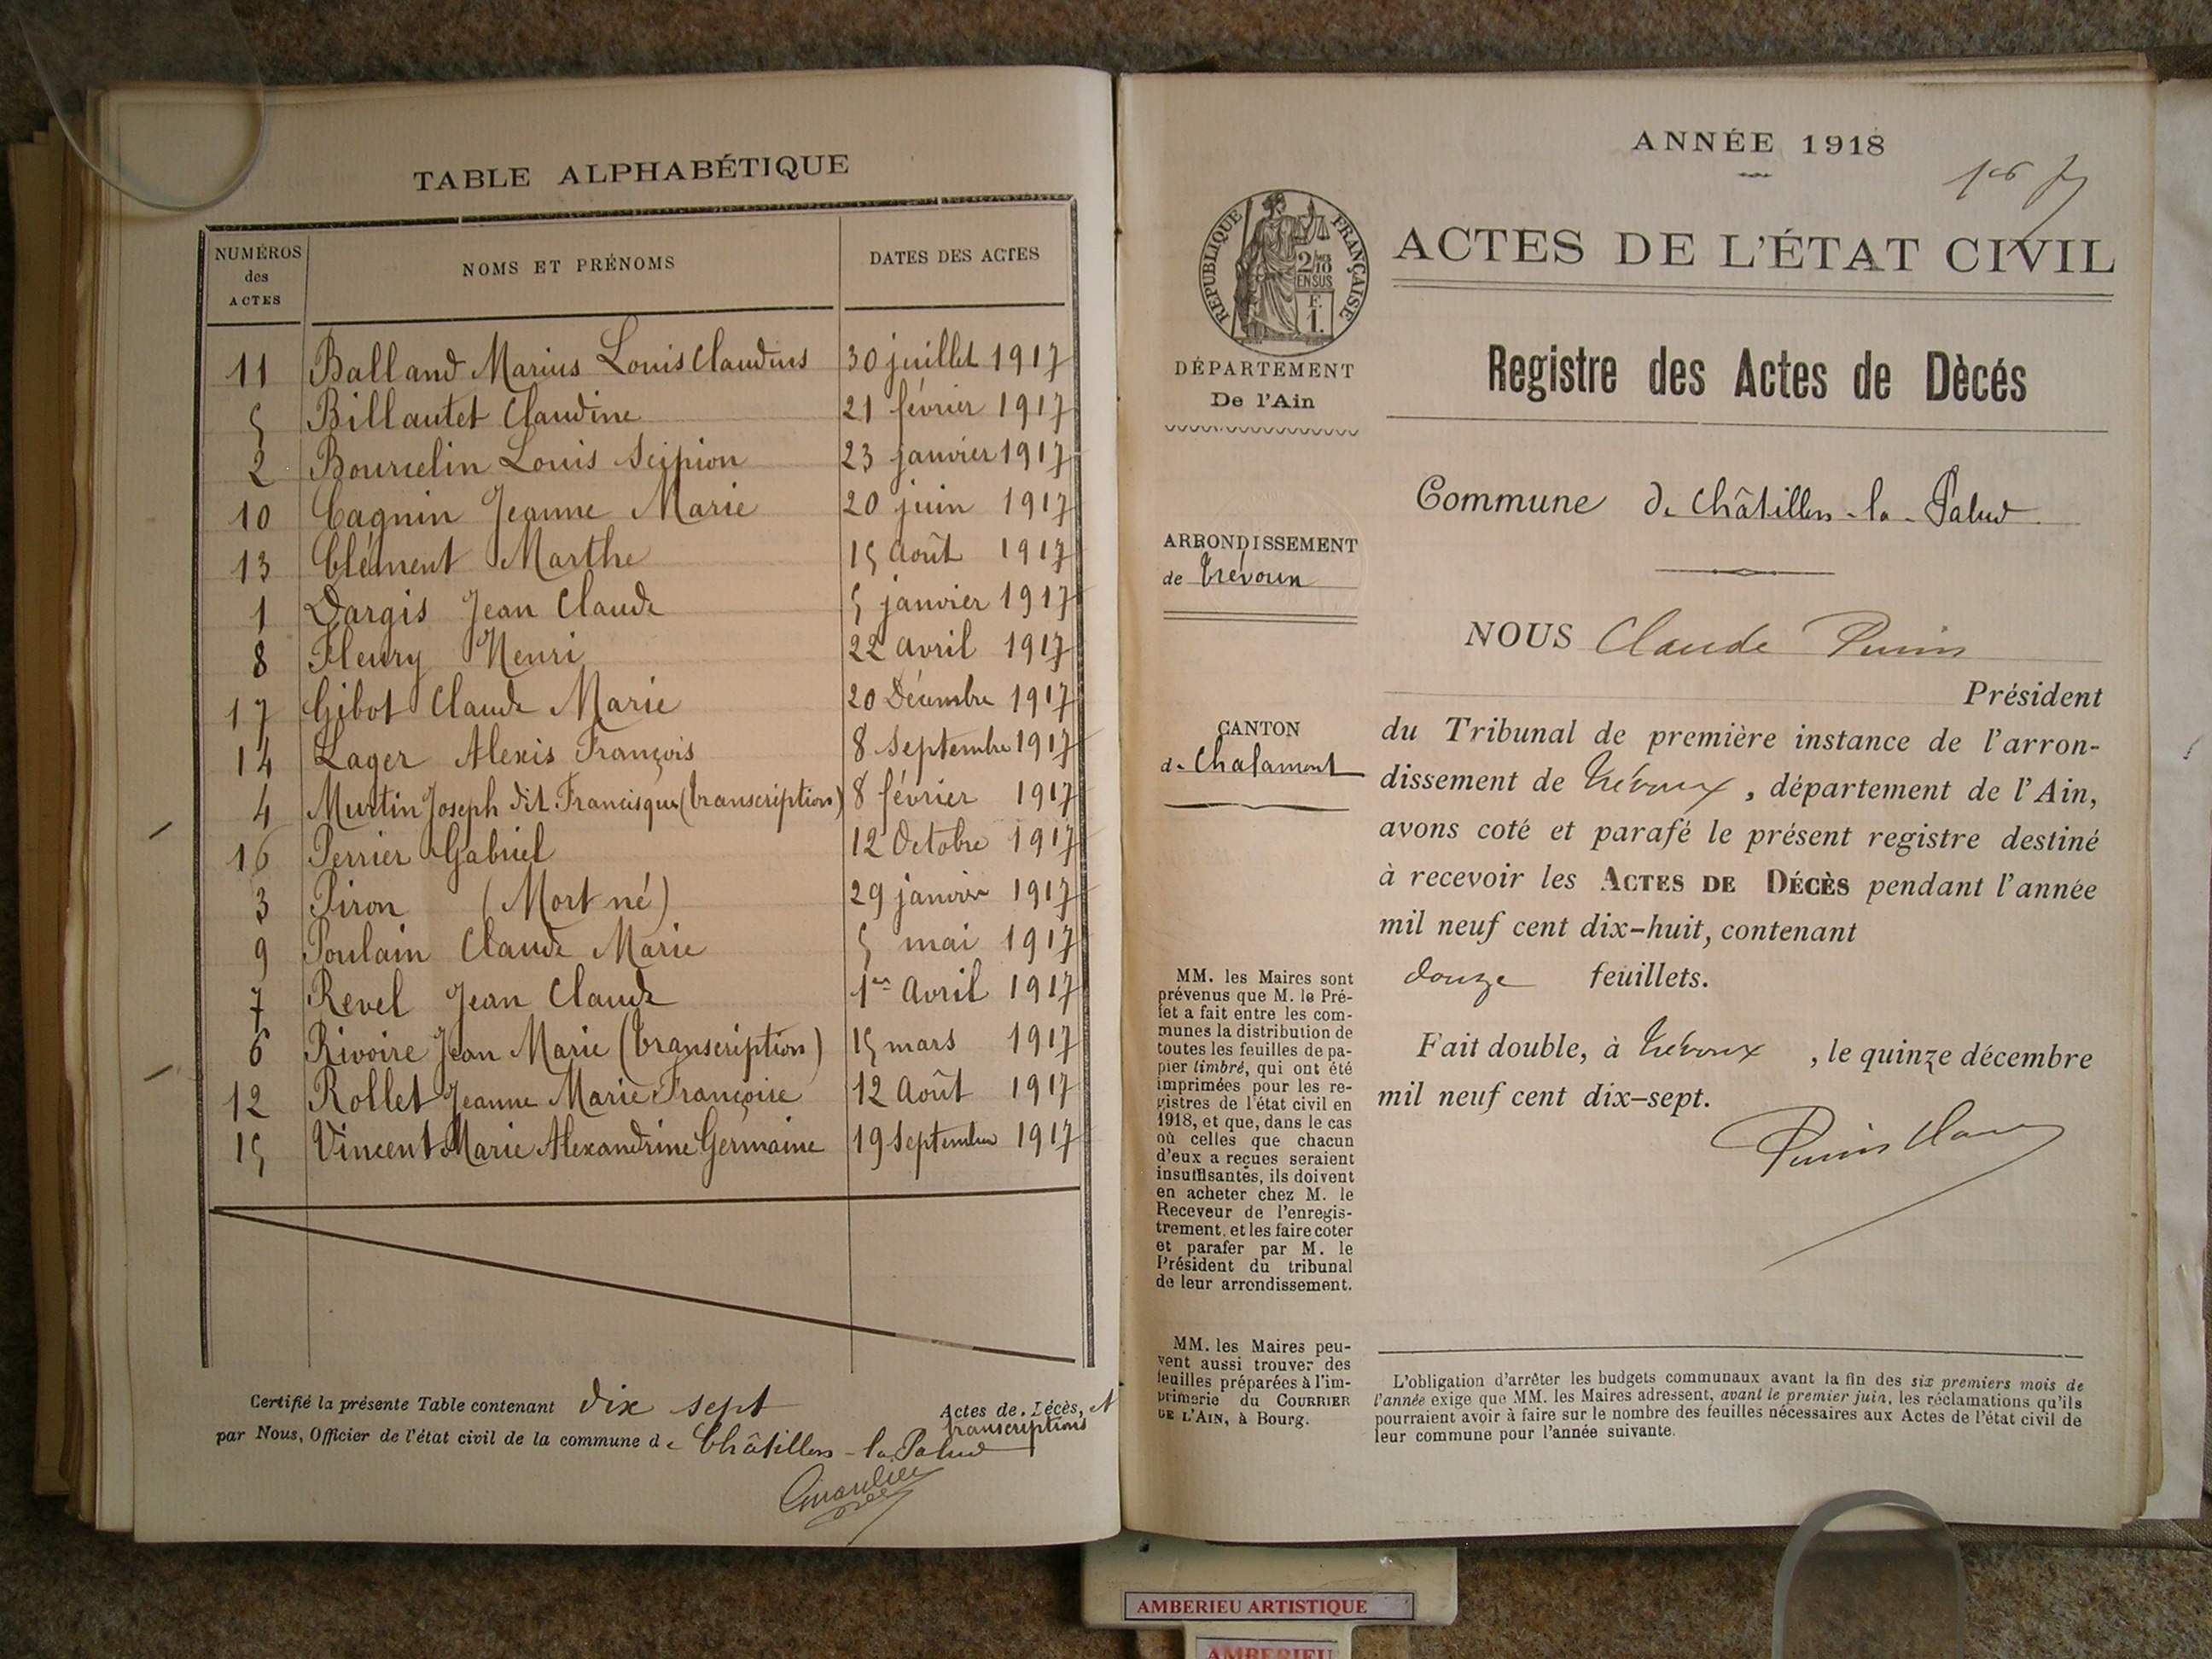 TABLE ALPHABÉTIQUE
NUMÉROS des ACTES
NOMS ET PRÉNOMS
DATES DES ACTES
11 Balland Marius Louis Claudius 30 juillet 1917
5 Billautet Claudine 21 février 1917
2 Bourcelin Louis Scipion 23 janvier 1917
10 Cagnin Jeanne Marie 20 juin 1917
13 Clément Marthe 15 Août 1917
1 Dargis Jean Claude 5 janvier 1917
8 Fleury Henri 22 avril 1917
17 Gibot Claude Marie 20 Décembre 1917
14 Lager Alexis François 8 Septembre 1917
4 Murtin Joseph dit Francisque (transcription) 8 février 1917
16 Perrier Gabriel 12 Octobre 1917
3 Piron (Mort né) 29 janvier 1917
9 Poulain Claude Marie 5 mai 1917
7 Revel Jean Claude 1er Avril 1917
6 Rivoire Jean Marie (transcription) 15 mars 1917
12 Rollet Jeanne Marie Françoise 12 Août 1917
15 Vincent Marie Alexandrine Germaine 19 septembre 1917
Certifié la présente Table contenant dix sept Actes de Décès, et
transcriptions
par Nous, Officier de l'état civil de la commune de Châtillon-la-Palud
ANNÉE 1918
ACTES DE L'ÉTAT CIVIL
RÉPUBLIQUE FRANÇAISE
2/10
EN SUS
F.
1.
DÉPARTEMENT
De l'Ain
Registre des Actes de Dècés
Commune de Châtillon-la-Palud
ARRONDISSEMENT
de Trévoux
NOUS Claude
Président
CANTON
de Chalamont
du Tribunal de première instance de l'arron-
dissement de Trévoux, département de l'Ain,
avons coté et parafé le présent registre destiné
à recevoir les ACTES DE DÉCÈS pendant l'année
mil neuf cent dix-huit, contenant
douze feuillets.
Fait double, à Trévoux, le quinze décembre
mil neuf cent dix-sept.
MM. les Maires sont
prévenus que M. le Pré-
fet a fait entre les com-
munes la distribution de
toutes les feuilles de pa-
pier timbré, qui ont été
imprimées pour les re-
gistres de l'état civil en
1918, et que, dans le cas
où celles que chacun
d'eux a reçues seraient
insuffisantes, ils doivent
en acheter chez M. le
Receveur de l'enregis-
trement. et les faire coter
et parafer par M. le
Président du tribunal
de leur arrondissement.
MM. les Maires peu-
vent aussi trouver des
feuilles préparées à l'im-
primerie du COURRIER
DE L'AIN, à Bourg.
L'obligation d'arrêter les budgets communaux avant la fin des six premiers mois de
l'année exige que MM. les Maires adressent, avant le premier juin, les réclamations qu'ils
pourraient avoir à faire sur le nombre des feuilles nécessaires aux Actes de l'état civil de
leur commune pour l'année suivante.
AMBERIEU ARTISTIQUE
AMBERIEU